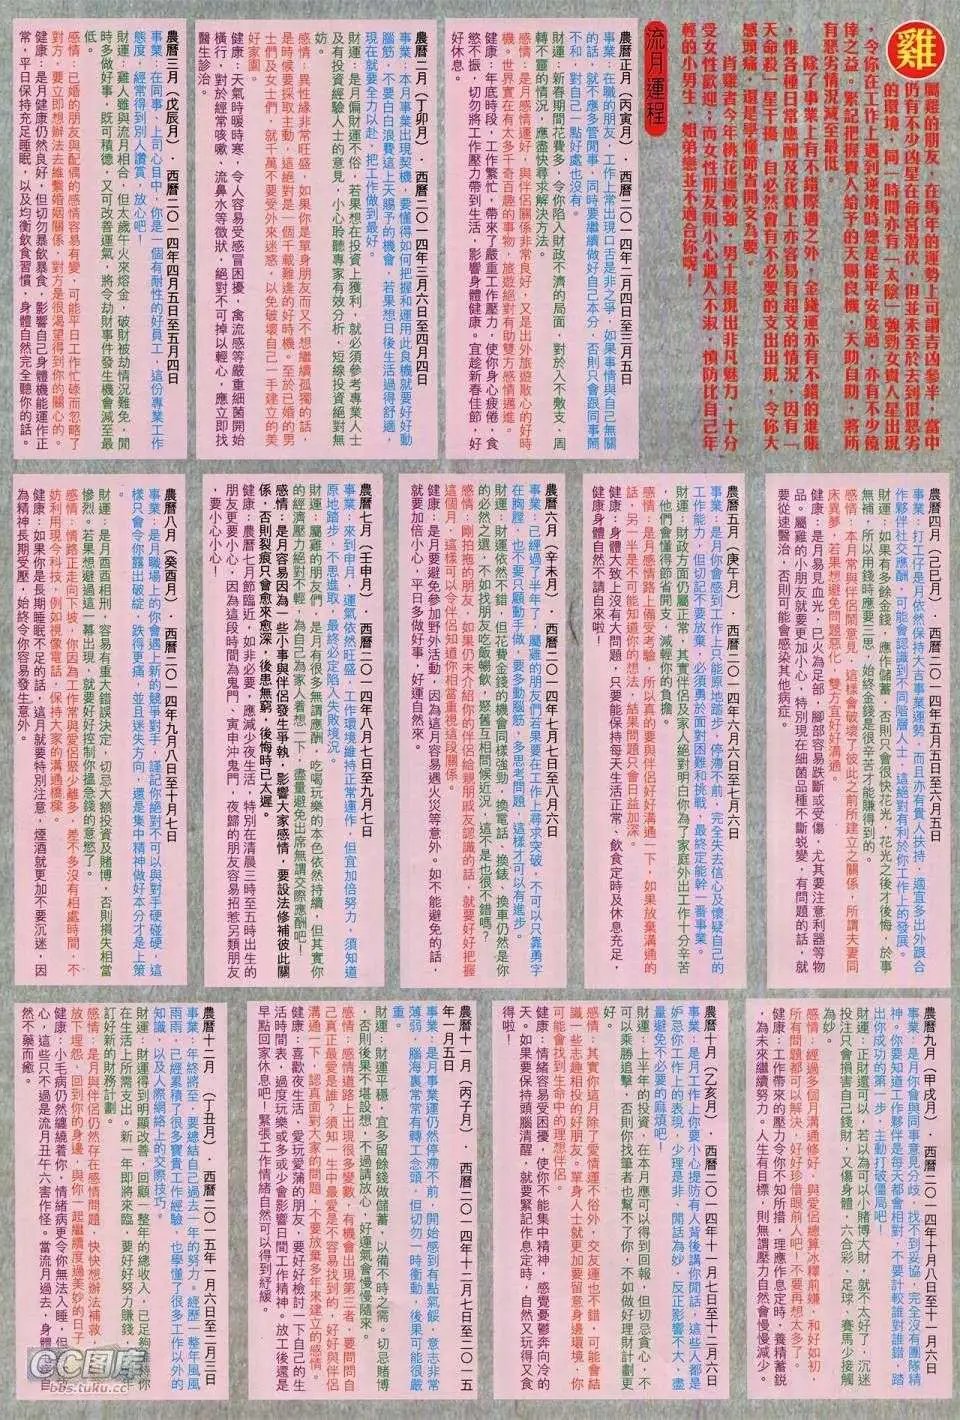 雞
屬雞的朋友，在馬年的運勢上可謂吉凶參半，當中
仍有不少凶星在命宮潛伏，但並未至於去到很惡劣
的環境，同一時間亦有「太陰」強勁女貴人星出現
，令你在工作上遇到逆境時總是能平安度過，亦有不少僥
倖之益。緊記把握貴人給予的天賜良機，天助自助，將所
有惡劣情況減至最低。
除了事業上有不錯際遇之外，金錢運亦有不錯的進賬
，惟各種日常應酬及花費上亦容易有超支的情況，因有「
天命殺」星干擾，自必然會有不必要的支出出現，令你大
感頭痛，還是學懂節省開支為要。
肖雞者今年桃花運較強，男士展現出非凡魅力，十分
受女性歡迎；而女性朋友則小心遇人不淑，慎防比自己年
輕的小男生，姐弟戀並不適合你呢！
流月運程
農曆正月（丙寅月）．西曆二○一四年二月四日至三月五日
事業：在職的朋友，工作上常出現口舌是非之爭，如果事情與自己無關
的話，就不應多管閒事，同時要繼續做好自己本分，否則只會跟同事鬧
不和，對自己一點好處也沒有。
財運：新春期間花費多，令你陷入財政不濟的局面，對於入不敷支、周
轉不靈的情況，應盡快與伴侶尋求解決方法。
感情：是月感情與伴侶關係非常良好，又是出外旅遊散心的好時
機。世界實在有太多千奇百趣的事物，旅遊絕對有助雙方感情邁進。
健康：年底時段，工作繁忙，帶來了嚴重工作壓力，使你身心疲倦，食
慾不振，切勿將工作壓力帶到生活，影響身體健康。宜趁新春佳節，好
好休息。
農曆二月（丁卯月）．西曆二○一四年三月六日至四月四日
事業：本月事業出現契機，要懂得如何把握和運用此良機就要好好動
腦筋，不要白白浪費這上天賜予的機會，若果想日後生活過得舒適，
現在就要全力以赴，把工作做到最好。
財運：是月偏財運不俗，若果想在投資上獲利，就必須參考專業人士
及有投資經驗人士的意見，小心聆聽專家有效分析，短線投資絕對無
妨。
感情：異性緣非常旺盛，如果你是單身朋友而又不想繼續孤獨的話，
是時候要採取主動，這絕對是一個千載難逢的好時機。至於已婚的男
士們及女士們，就千萬不要受外來迷惑，以免破壞自己一手建立的美
好家園。
健康：天氣時暖時寒，令人容易受感冒困擾，禽流感等嚴重細菌開始
橫行，對於經常咳嗽、流鼻水等徵狀，絕對不可掉以輕心，應立即找
醫生診治。
農曆三月（戊辰月）．西曆二○一四年四月五日至五月四日
事業：在同事、上司心目中，你是一個有耐性的好員工，這份專業工作
態度，經常得到別人讚賞，放心吧！
財運：雞人雖與流月相合，但太歲午火來熔金，破財被劫情況難免，閒
時多做好事，既可積德，又可改善運氣，將令劫財事件發生機會減至最
低。
感情：已婚的朋友與配偶的感情容易有變，可能平日工作忙碌而忽略了
對方，要立即想辦法去維繫婚姻關係，對方是很渴望得到你的關心的。
健康：是月健康仍然良好，但切勿暴飲暴食，影響自己身體機能運作正
常，平日保持充足睡眠，以及均衡飲食習慣，身體自然完全聽你的話。
農曆四月（己巳月）．西曆二○一四年五月五日至六月五日
事業：打工仔是月依然保持大吉事業運勢，而且亦有貴人扶持，適宜多出外跟合
作夥伴社交應酬，可能會認識到不同階層人士，這絕對有利於你工作上的發展。
財運：如果有多餘金錢，應作儲蓄，否則只會很快花光，花光之後才後悔，於事
無補，所以用錢時應要三思，始終金錢是很辛苦才能賺得到的。
感情：本月常與伴侶鬧意見，這樣會破壞了彼此之前所建立之關係，所謂夫妻同
床異夢，若果想避免問題惡化，雙方宜好好溝通。
健康：是月易見血光，巳火為足部，腳部容易跌斷或受傷，尤其要注意利器等物
品。屬雞的小朋友就要更加小心，特別現在細菌品種不斷蛻變，有問題的話，就
要從速醫治，否則可能會感染其他病症。
農曆五月（庚午月）．西曆二○一四年六月六日至七月六日
事業：是月你會感到工作上只能原地踏步，停滯不前，完全失去信心及懷疑自己的
工作能力，但切記不要放棄，必須勇於面對困難和挑戰，最終定能幹一番事業。
財運：財政方面仍屬正常，其實伴侶及家人絕對明白你為了家庭外出工作十分辛苦
，他們會懂得節省開支，減輕你的負擔。
感情：是月感情路上備受考驗，所以真的要與伴侶好好溝通一下，如果放棄溝通的
話，另一半是不可能知道你的想法，結果問題只會日益加深。
健康：健康大致上沒有大問題，只要能保持每天生活正常、飲食定時及休息充足，
健康身體自然不請自來啦！
農曆六月（辛未月）．西曆二○一四年七月七日至八月六日
事業：已經過了半年了，屬雞的朋友們若果要在工作上尋求突破，不可以只靠勇字
在胸膛，也不要只顧動手做，要多動腦筋，多思考問題，這樣才可以有進步。
財運：財運依然不錯，但花費金錢的機會同樣強勁，換電話、換錶、換車仍然是你
的必然之選，不如找朋友吃飯暢飲，聚舊互相問候近況，這不是也很不錯嗎？
感情：剛拍拖的朋友，如果仍未介紹你的伴侶給親朋戚友認識的話，就要好好把握
這個月，這樣可以令伴侶知道你相當重視這段關係。
健康：是月要避免參加野外活動，因為這月容易遇火災等意外。如不能避免的話，
就要加倍小心，平日多做好事，好運自然來。
農曆七月（壬申月）．西曆二○一四年八月七日至九月七日
事業：來到申月，運氣依然旺盛，工作環境維持正常運作，但宜加倍努力，須知道
原地踏步、不思進取，最終必定陷入失敗境況。
財運：屬雞的朋友們，是月有很多無謂應酬，吃喝玩樂的本色依然持續，但其實你
的經濟壓力絕對不輕，為自己為家人着想一下，盡量避免出席無謂交際應酬吧！
感情：是月容易因為一些小事與伴侶發生爭執，影響大家感情，要設法修補彼此關
係，否則裂痕只會愈來愈深，後患無窮，後悔時已太遲。
健康：農曆七月節臨近，如非必要，應減少夜生活，特別在清晨三時至五時出生的
朋友更要小心，因為這段時間為鬼門、寅申沖鬼門，夜歸的朋友容易招惹另類朋友
，要小心小心！
農曆八月（癸酉月）．西曆二○一四年九月八日至十月七日
事業：是月職場上的你會遇上新的競爭對手，謹記你絕對不可以與對手硬碰硬，這
樣只會令你露出破綻，跌得更痛，並且迷失方向，還是集中精神做好本分才是上策
。
財運：是月酉酉相刑，容易有重大錯誤決定，切忌大額投資及賭博，否則損失相當
慘烈。若果想避過這一幕出現，就要好好控制你搵急錢的意慾了。
感情：情路正走向下坡，你因為工作常與愛侶聚少離多，差不多沒有相處時間，不
妨利用現今科技，例如視像電話，保持大家的溝通橋樑。
健康：如果你是長期睡眠不足的話，這月就要特別注意，煙酒就更加不要沉迷，因
為精神長期受壓，始終令你容易發生意外。
農曆九月（甲戌月）．西曆二○一四年十月八日至十一月六日
事業：是月你會與同事意見分歧，找不到妥協，完全沒有團隊精
神。你要知道工作夥伴是每天都會相對，不要計較誰對誰錯，踏
出你成功的第一步，主動打破僵局吧！
財運：正財還可以，是月本以為可以小賭博大財，就不太好了，沉迷
投注只會損害自己錢財，又傷身體，六合彩、足球、賽馬少接觸
為妙。
感情：經過多個月溝通修好，與愛侶總算冰釋前嫌，和好如初，
所有問題都可以解決，好好珍惜眼前人吧！不要再想太多了。
健康：工作帶來的壓力令你不知所措，理應作息定時，養精蓄銳
，為未來繼續努力。人生有目標，則無謂壓力自然會慢慢減少。
農曆十月（乙亥月）．西曆二○一四年十一月七日至十二月六日
事業：是月工作上你要小心提防有人背後講你閒話，這些人都是
妒忌你工作上的表現，少理是非、閒話為妙，反正影響不大，盡
量避免不必要的麻煩吧！
財運：上半年的投資，在本月應可以得到回報，但切忌貪心，不
可以乘勝追擊，否則你找筆者也幫不了你，不如做好理財計劃更
好。
感情：其實你這月除了愛情運不俗外，交友運也不錯，可能會結
識一些志趣相投的好朋友。單身人士就更加要留意身邊環境，你
可能會找到生命中的理想伴侶。
健康：情緒容易受困擾，使你不能集中精神，感覺憂鬱奔向冷的
天。如果要保持頭腦清醒，就要緊記作息定時，自然又玩得又食
得啦！
農曆十一月（丙子月）．西曆二○一四年十二月七日至二○一五
年一月五日
事業：是月事業運仍然停滯不前，開始感到有點氣餒，意志非常
薄弱，腦海裏常常有轉工念頭，但切勿一時衝動，後果可能很嚴
重。
財運：財運平穩，宜多留餘錢做儲蓄，以備不時之需。切忌賭博
，否則後果不堪設想，不過請放心，好運氣會慢慢隨來。
感情：感情道路上出現很多變數，有機會出現第三者，要問問自
己真正最愛是誰？須知一生中最愛是不容易找到的，好好與伴侶
溝通一下，認真面對大家的問題，不要放棄多年來建立的感情。
健康：喜歡夜生活，愛玩愛蒲的朋友，要好好檢討一下自己的生
活時間表，過度玩樂或多或少會影響日間工作精神。放工後還是
早點回家休息吧！緊張工作情緒自然可以得到紓緩。
農曆十二月（丁丑月）．西曆二○一五年一月六日至二月三日
事業：年終將至，要總結自己過去一年的努力。經歷一整年風風
雨雨，已經累積了很多寶貴工作經驗，也學懂了很多工作以外的
知識，以及人際網絡上的交際技巧。
財運：財運得到明顯改善，回顧一整年的總收入，已足夠
在生活上所需支出。新一年即將來臨，要好好努力賺錢，
訂好新的財務計劃。
感情：是月與伴侶仍然存在感情問題，快快想辦法補救，
放下埋怨，回到你的身邊，與你一起繼續度過美妙的日子
健康：小毛病仍然纏繞着你，情緒病更令你無法入睡，但
心，這些只不過是流月丑午六害作怪。當流月過去，身體
然不藥而癒。
CC图库
bbs.tuku.cc